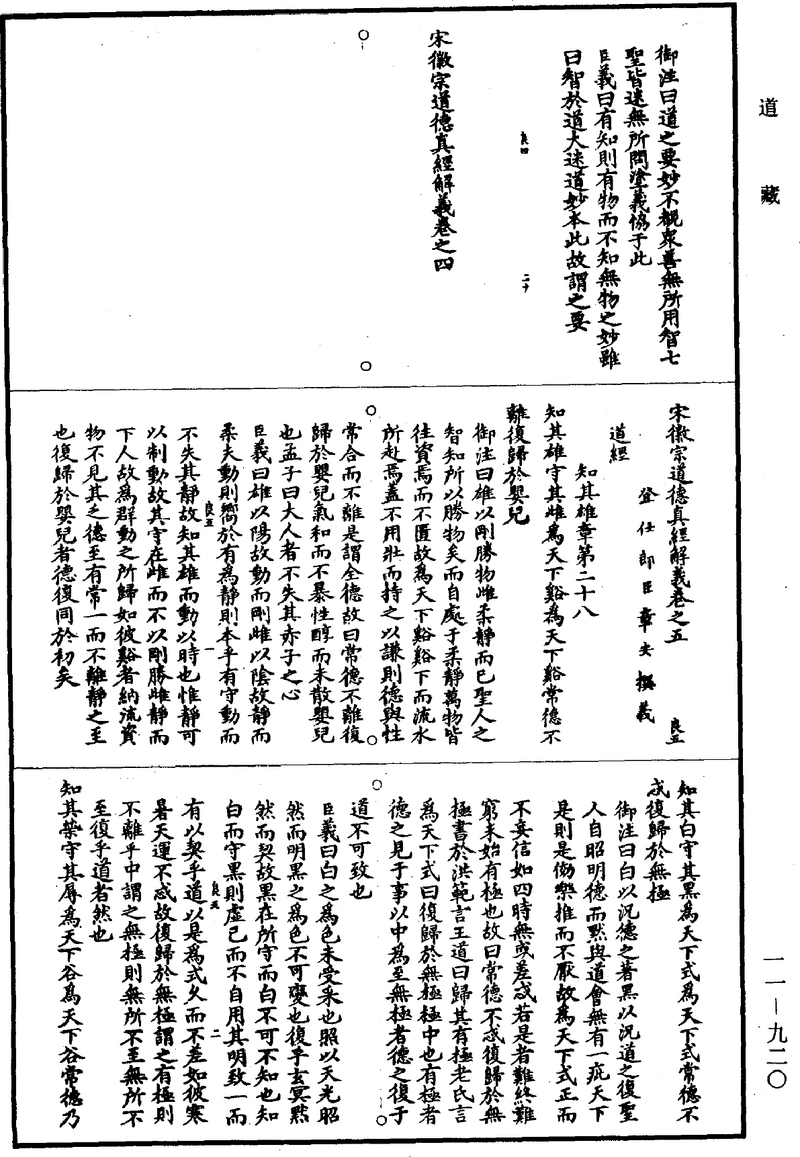 道藏
御注曰道之要妙不覩衆善無所用智七
聖皆迷無所問塗義協于此
臣義曰有知則有物而不知無物之妙雖
曰智於道大迷道妙本此故謂之要
良四
二十
宋徽宗道德真經解義卷之四
宋徽宗道德真經解義卷之五
良五
登仕郎臣章安撰義
道經
知其雄章第二十八
知其雄守其雌為天下谿為天下谿常德不
離復歸於嬰兒
御注曰雄以剛勝物雌柔靜而已聖人之
智知所以勝物矣而自處于柔靜萬物皆
往資焉而不匱故為天下谿谿下而流水
所赴焉蓋不用壯而持之以謙則德與性
常合而不離是謂全德故曰常德不離復
歸於嬰兒氣和而不暴性醇而未散嬰兒
也孟子曰大人者不失其赤子之心
臣義曰雄以陽故動而剛雌以陰故靜而
柔夫動則嚮於有為靜則本乎有守動而
良五
一
不失其靜故知其雄而動以時也惟靜可
以制動故其守在雌而不以剛勝雌靜而
下人故為群動之所歸如彼谿者納流資
物不見其乏德至有常一而不離靜之至
也復歸於嬰兒者德復同於初矣
知其白守其黑為天下式為天下式常德不
忒復歸於無極
御注曰白以況德之著黑以況道之復聖
人自昭明德而默與道會無有一疵天下
是則是傚樂推而不厭故為天下式正而
不妄信如四時無或差忒若是者難終難
窮未始有極也故曰常德不忒復歸於無
極書於洪範言王道曰歸其有極老氏言
為天下式曰復歸於無極極中也有極者
德之見于事以中為至無極者德之復于
道不可致也
臣義曰白之為色未受采也照以天光昭
然而明黑之為色不可變也復乎玄冥默
然而契故黑在所守而白不可不知也知
白而守黑則虛己而不自用其明致一而
良五
二
有以契乎道以是為式久而不差如彼寒
暑天運不忒故復歸於無極謂之有極則
不離乎中謂之無極則無所不至無所不
至復乎道者然也
知其榮守其辱為天下谷為天下谷常德乃
一一—九二〇